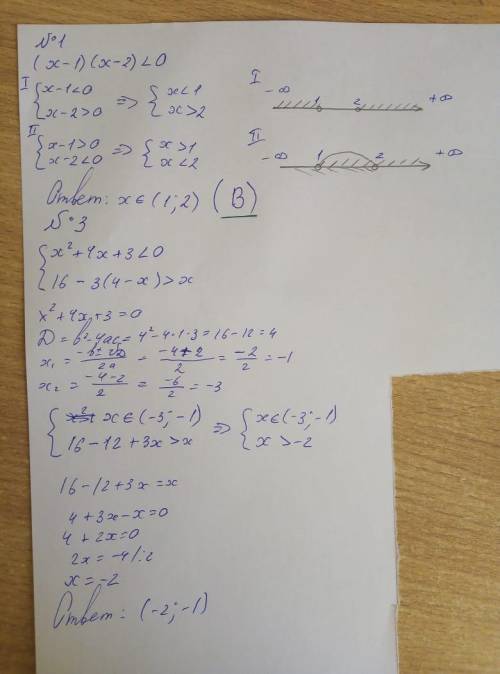 №1
(x-1)(x-2)<0
I {x-1<0 x-2>0 => {x<1 x>2
I -∞ 1 2 +∞
II {x-1>0 x-2<0 => {x>1 x<2
II -∞ 1 2 +∞
Ответ: x∈(1;2) (B)
№3
{x²+4x+3<0
16-3(4-x)>x
x²+4x+3=0
D=b²-4ac=4²-4·1·3=16-12=4
x₁=(-b±√D)/2a=(-4+2)/2=-2/2=-1
x₂=(-4-2)/2=-6/2=-3
{x∈(-3;-1) => {x∈(-3;-1)
16-12+3x>x x>-2
16-12+3x=x
4+3x-x=0
4+2x=0
2x=-4/:2
x=-2
Ответ: (-2;-1)